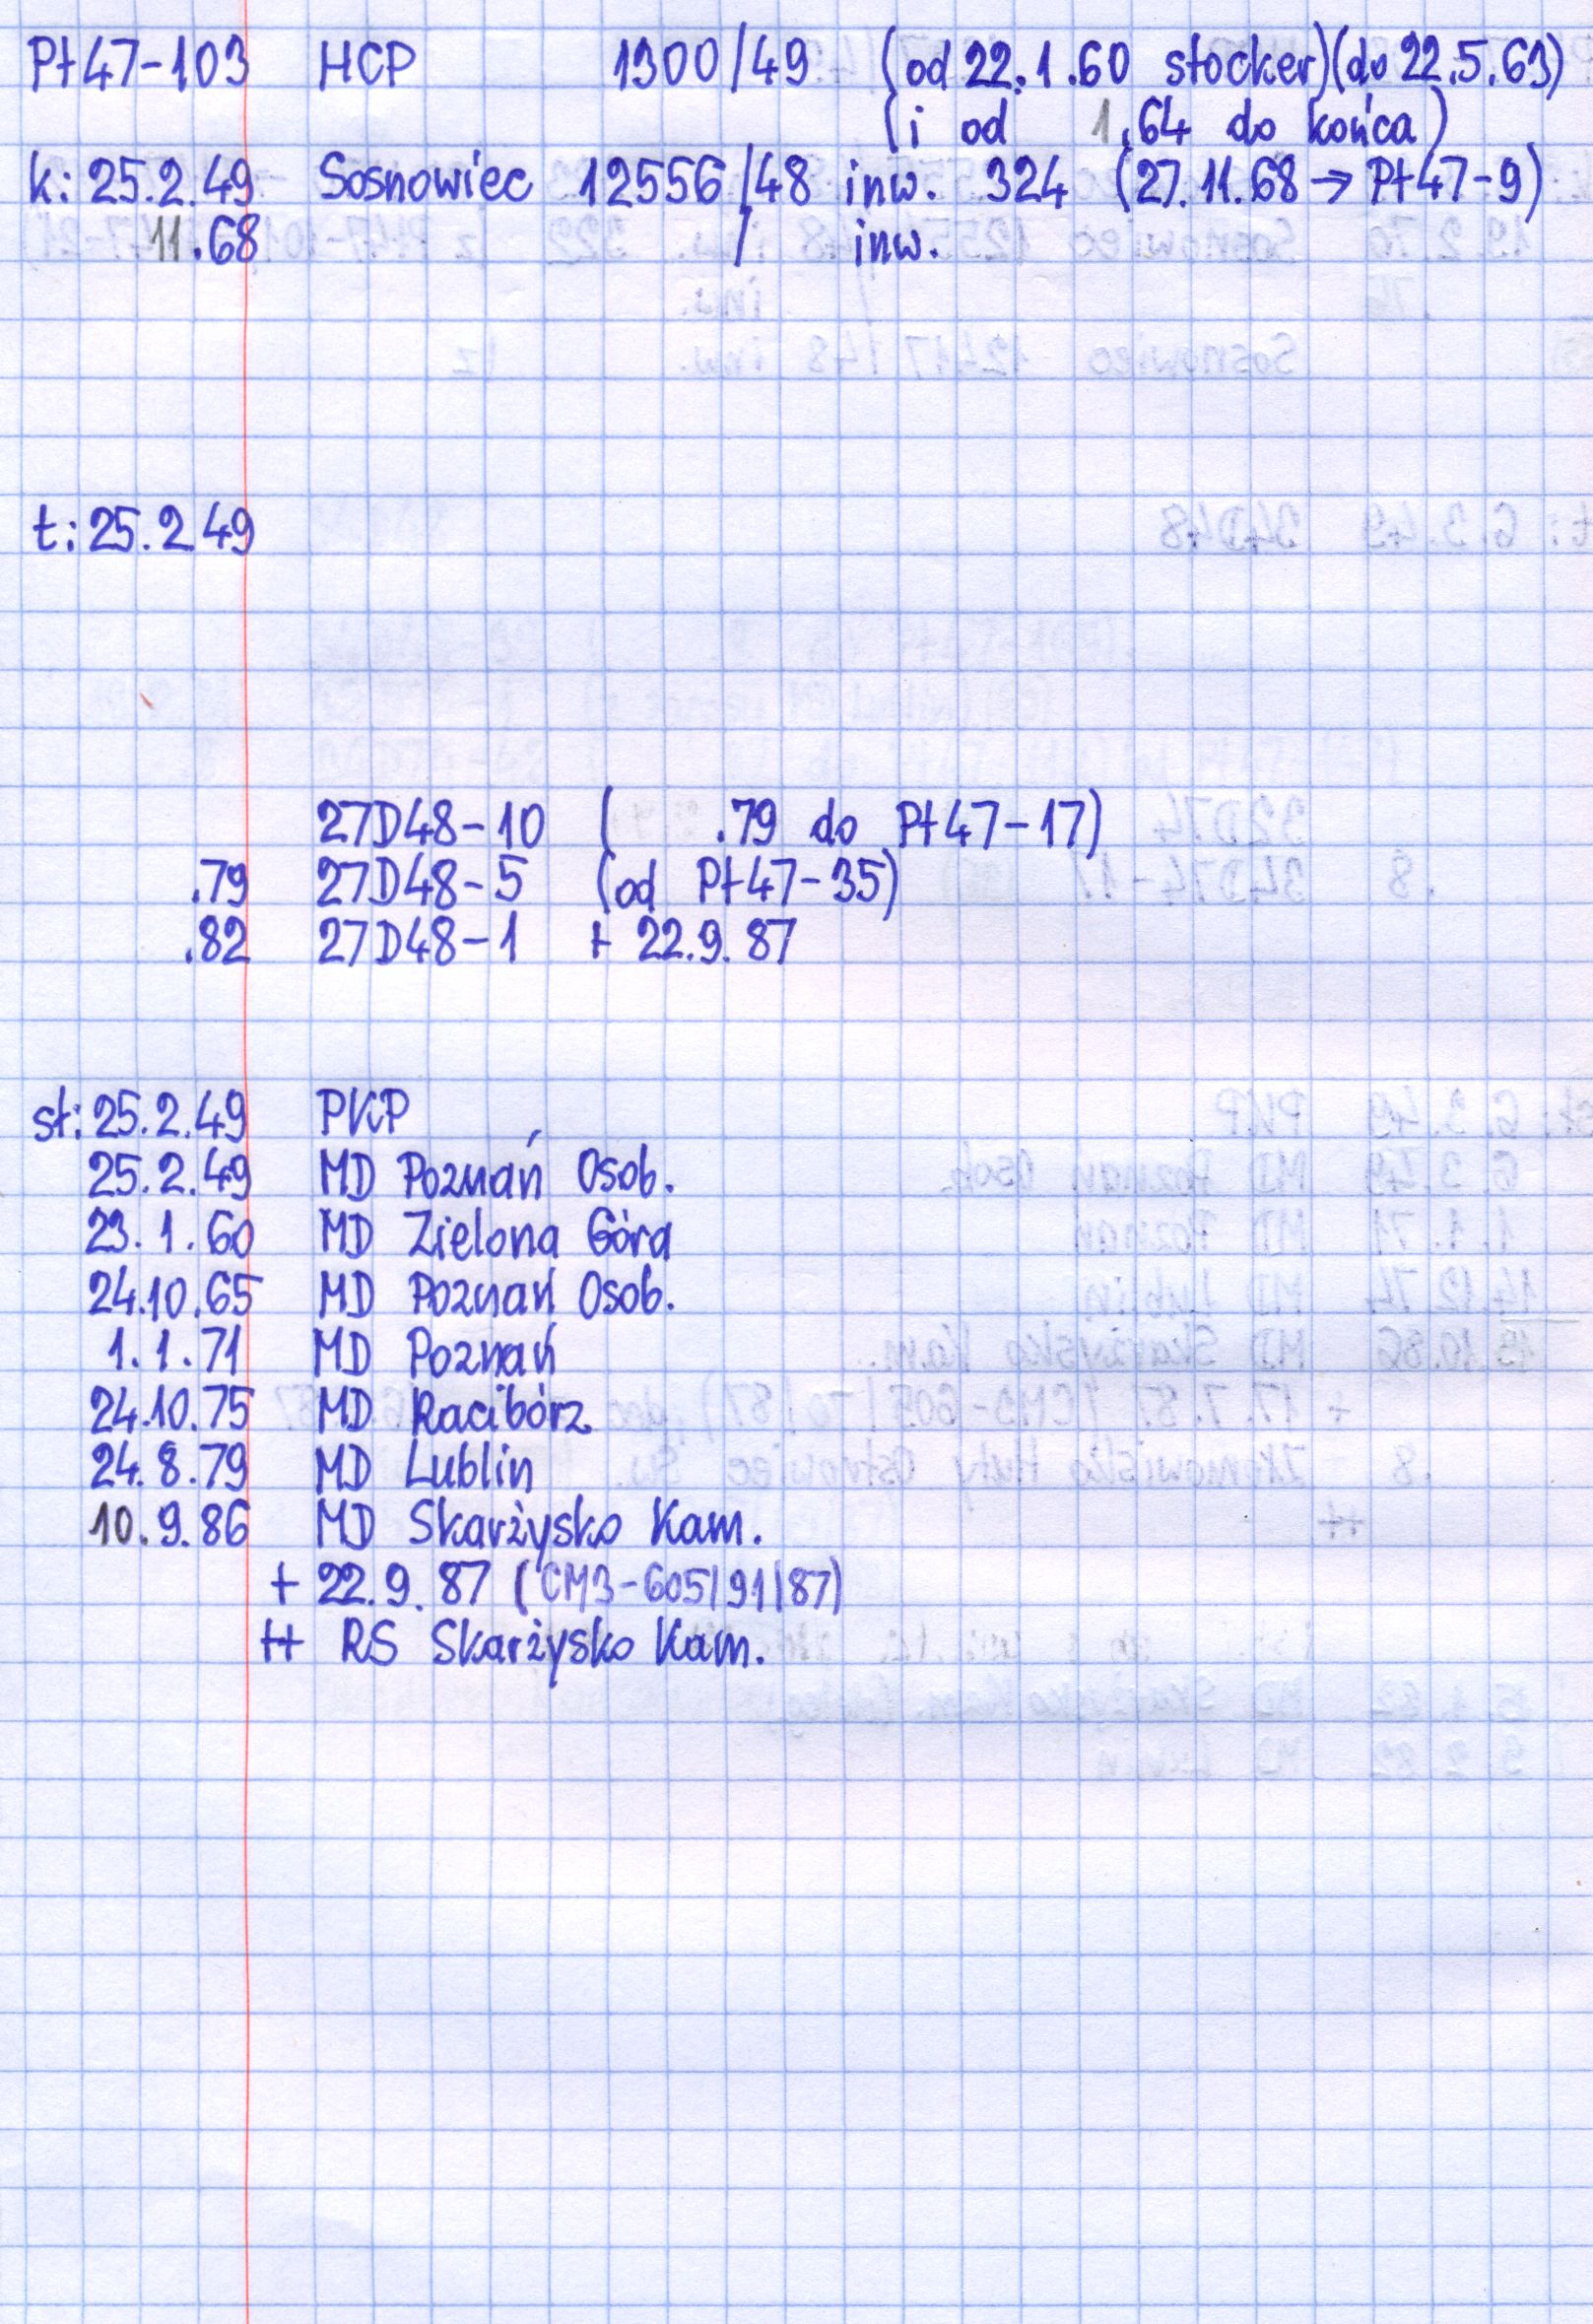 Pt47-103 HCP 1300/49 (od 22.1.60 stocker)(do 22.5.63)
(i od 1.64 do końca)
k: 25.2.49 Sosnowiec 12556/48 inw. 324 (27.11.68 → Pt47-9)
11.68 / inw.
t: 25.2.49
27D48-10 ( .79 do Pt47-17)
.79 27D48-5 (od Pt47-35)
.82 27D48-1 + 22.9.87
st: 25.2.49 PKP
25.2.49 MD Poznań Osob.
23.1.60 MD Zielona Góra
24.10.65 MD Poznań Osob.
1.1.71 MD Poznań
24.10.75 MD Racibórz
24.8.79 MD Lublin
10.9.86 MD Skarżysko Kam.
+ 22.9.87 (CM3-605/91/87)
++ RS Skarżysko Kam.